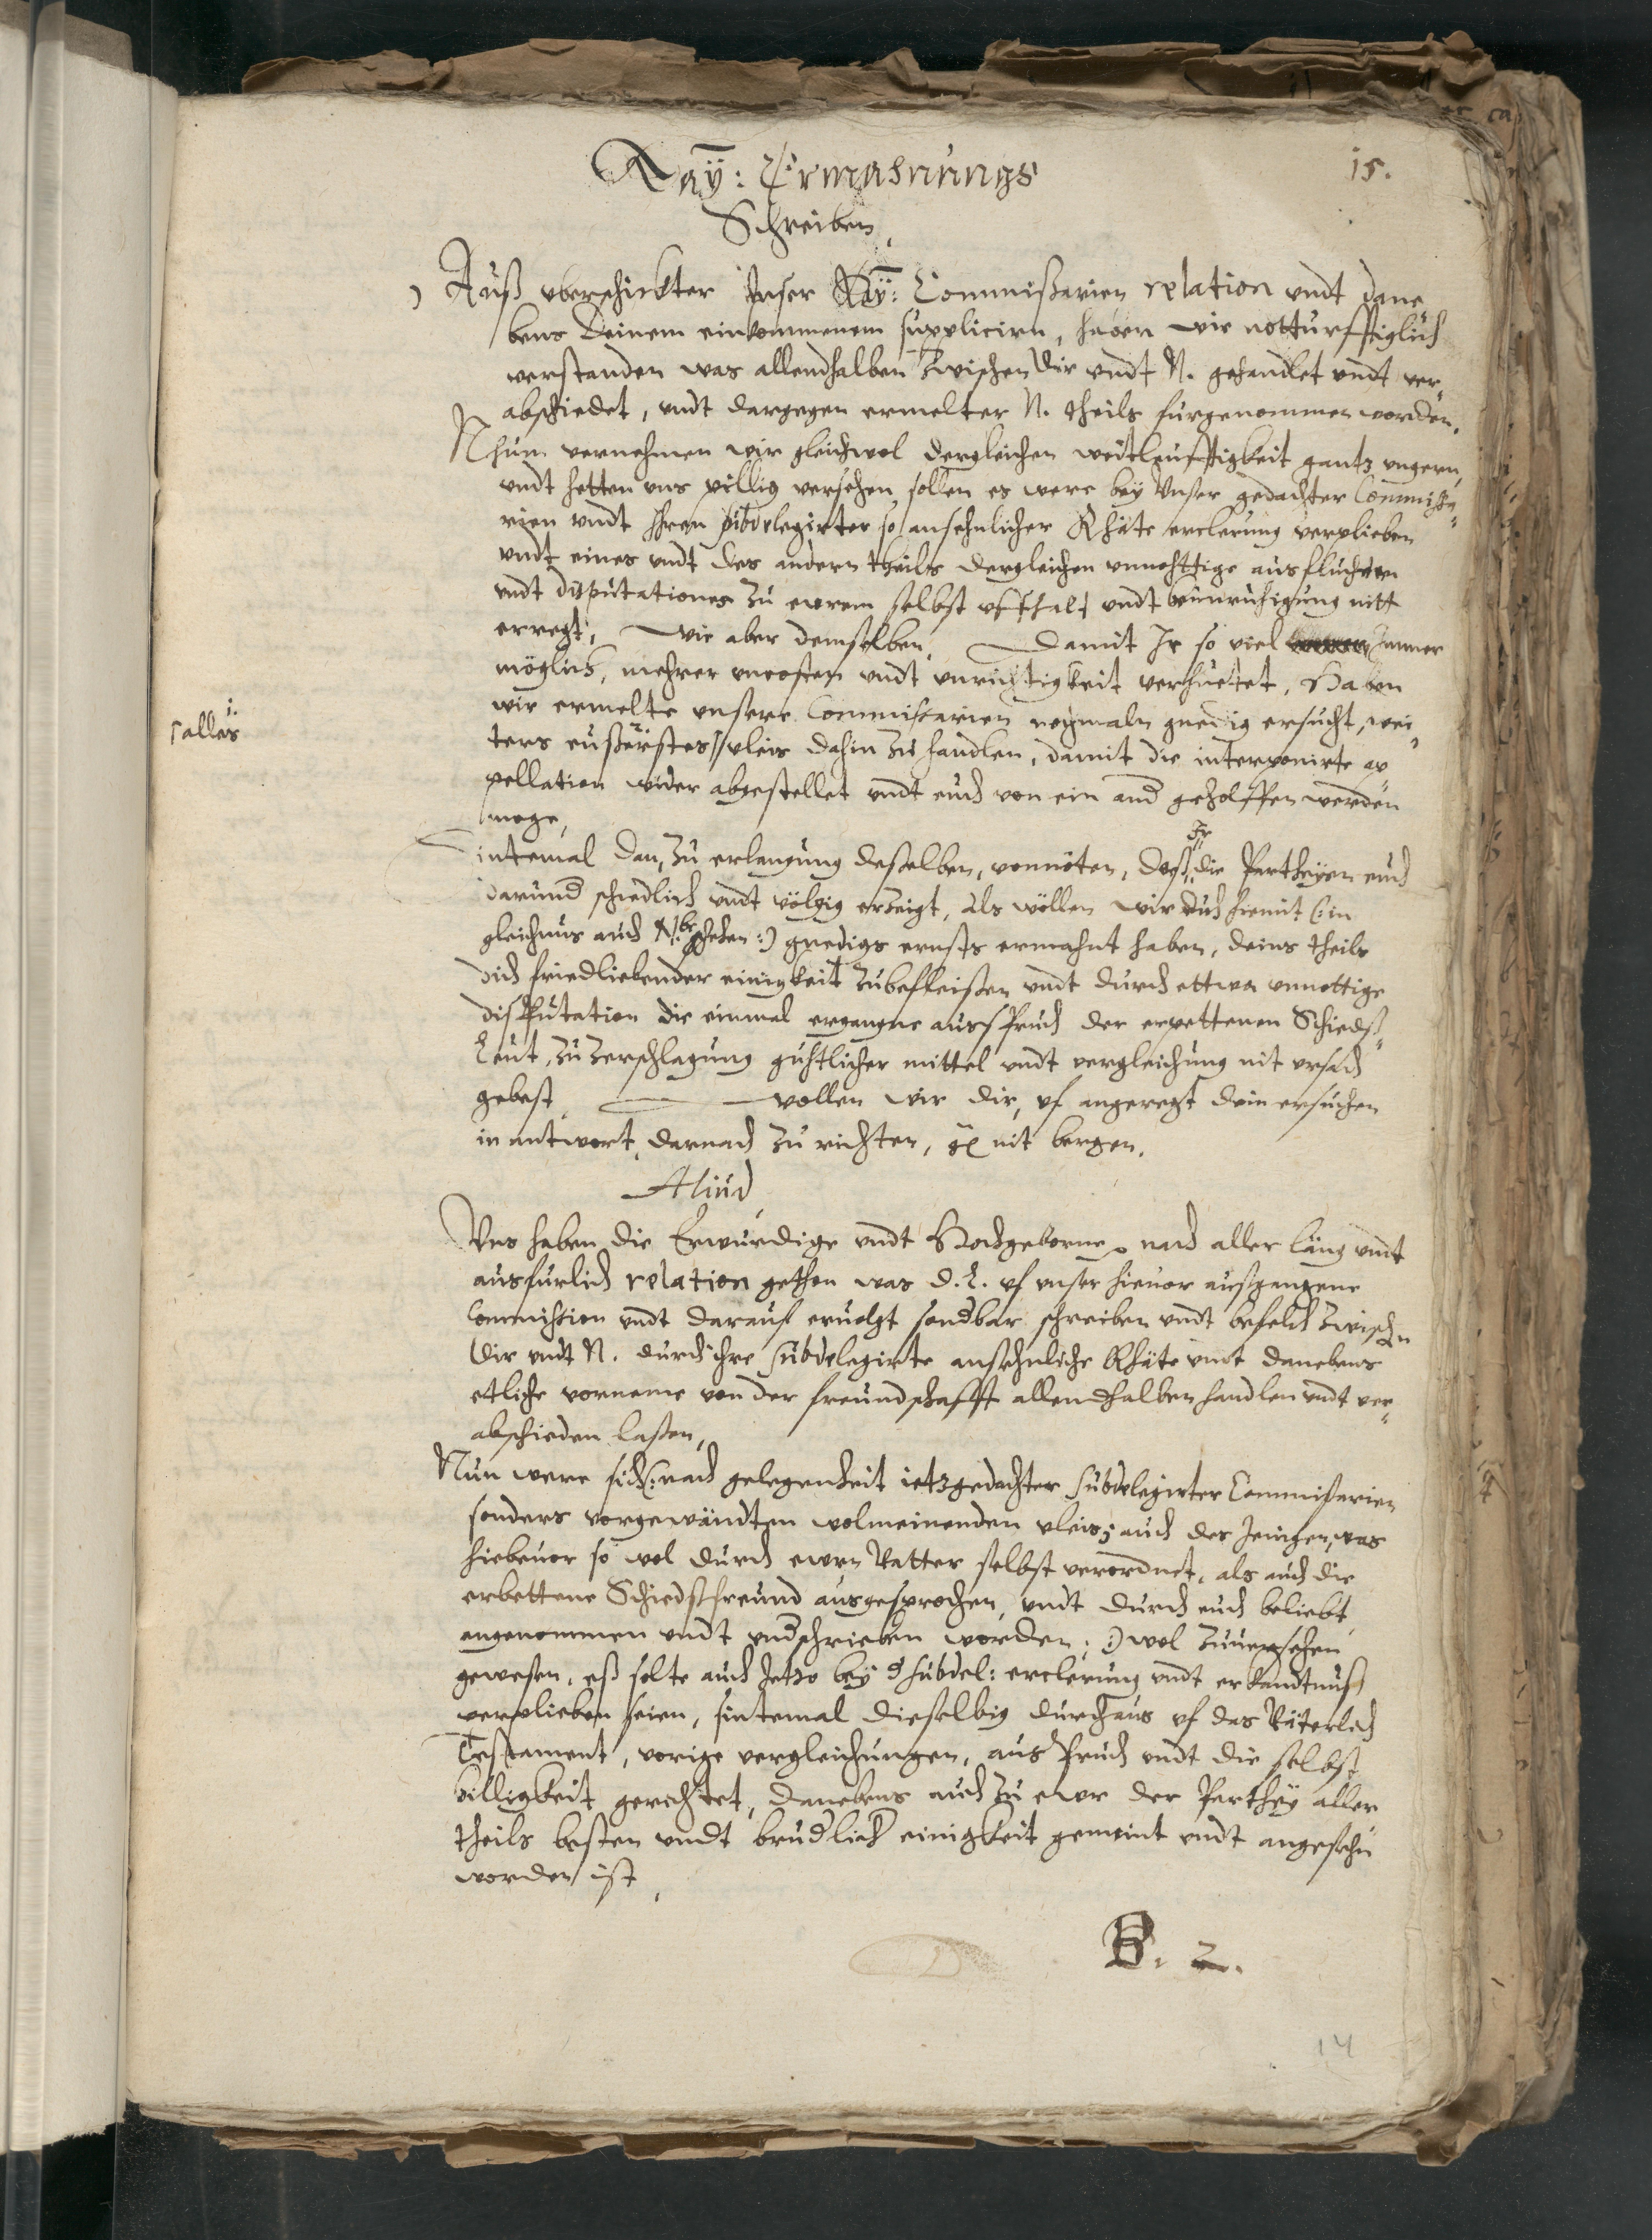 15.
Kaÿ: Ermahnungs
Schreiben,
Auß vberschickter Vnser Kaÿ: Commißarien relation vndt dane
bens Deinem einkommenem suppliciren, haben wir notturfftiglich
verstanden was allendhalben zwischen dir vndt N. gehandlet vndt ver„
abschiedet, vndt dargegen ermelter N. theils furgenommen worden.
Nhun vernehmen wir gleichwol dergleichen weitleufftigkeit gantz vngern,
vndt hetten vns pillig versehen sollen es were beÿ Vnser gedachter Commißa„
rien vndt Ihren subdelegirter so ansehnlicher Rhäte erclerung verplieben
vndt eines vndt des andern theils dergleichen vnnohttige ausfluchten
vndt disputationes zu ewrem selbst vffhalt vndt beunruhigung nitt
erregt, Wie aber demselben, Damit Ir so viel Immer
möglich, mehrer vncosten vndt vnrichtigkeit verhuetet, Haben
wir ermelte vnsere Commißarien nochmaln gnedig ersucht, wei„
1.
alles
ters eußerstes vleis dahin zu handlen, damit die interponirte ap„
pellation wider abgestellet vndt euch von ein and geholffen werden
moge,
Sintemal dan, zu erlangung deßelben, vonnöten, daß die Partheÿen euch
Ir
darund schiedlich vndt völgig erzeigt, Als wöllen wir dich hiemit (:in
gleichnus auch N. beschehen:) gnedigs ernsts ermahnt haben, deins theils
dich friedliebender einigkeit zubefleißen vndt durch ettwa vnnottige
disputation die einmal ergangne ausspruch der erpettenen Schieds„
Leut, zu Zerschlagung guhtlicher mittel vndt vergleichung nit vrsach
gebest, wollen wir dir, vf angeregt dein ersuchen
in antwort, darnach zu richten, nit bergen.
Aliud
Vns haben die Erwürdige vndt Hochgeborne nach aller läng vndt
ausfurlich relation gethon was D. L. vf vnser hieuor außgangene
Commission vndt darauf eruolgt sondbar schreiben vndt befelch zwischen
Dir vndt N. durch ihre subdelegirte ansehnliche Rhäte vndt danebens
etliche vorneme von der freundschafft allendhalben handlen vndt ver„
abschieden laßen,
Nun were sich (:nach gelegenheit ietzgedachter subdelegirter Commißarien
sonders vorgewändten wolmeinenden vleis, auch des Jenigen, was
hiebeuor so wol durch ewrn Vatter selbst verordnet, als auch die
erbettene Schiedsfreund ausgesprochen, vndt durch euch beliebt
angenommen vndt vndschrieben worden, :) wol zuuersehen
gewesen, eß solte auch Jetzo beÿ d subdel: erclerung vndt erkandtnuß
verplieben seien, sintemal dieselbig durchaus vf das Väterlich
Testament, vorige vergleichungen, ausspruch vndt die selbst
billigkeit gerichtet, danebens auch zu ewr der Parthÿ aller
theils besten vndt brudlich einigkeit gemeint vndt angesehn
worden ist,
B. 2.
14